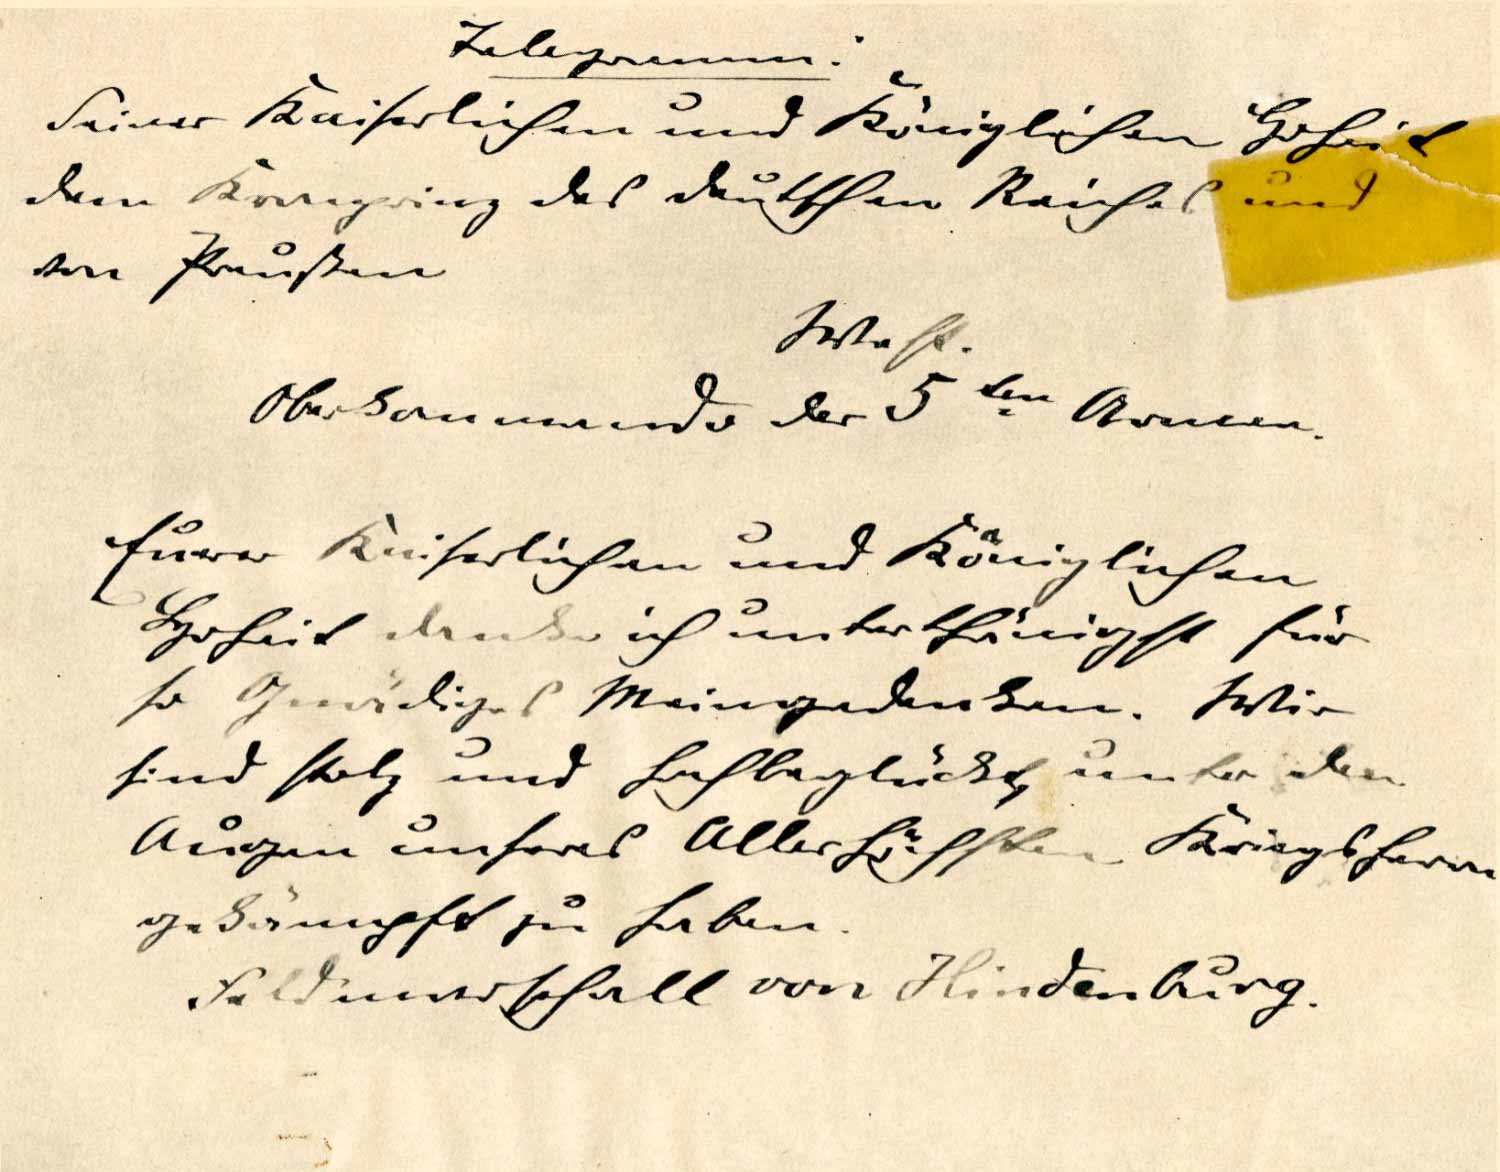 Telegramm:
Seiner Kaiserlichen und Königlichen Hoheit
dem Kronprinz des deutschen Reiches und
von Preußen
West.
Oberkommando der 5ten Armee.
Eurer Kaiserlichen und Königlichen
Hoheit danke ich unterthänigst für
so Gnädiges Meingedenken. Wir
sind stolz und hochbeglückt, unter den
Augen unseres Allerhöchsten Kriegsherrn
gekämpft zu haben.
Feldmarschall von Hindenburg.